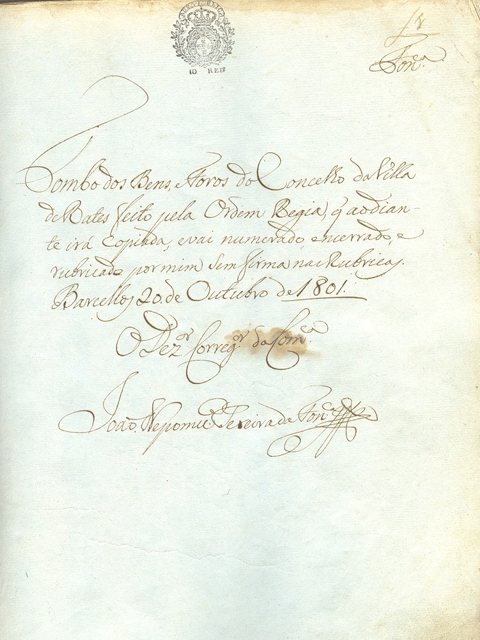 Fon.ca
Tombo dos Bens, e Foros do Concelho da Villa
de Rates feito pela Ordem Regia, q ao dian-
te irá Copiada, e vai numerado, encerrado, e
rubricado por mim sem firma nas Rubricas.
Barcellos 20 de Outubro de 1801.
O Dez.or Correg.or da Com.ca
João Nepomuc.o Pereira de Fon.ca